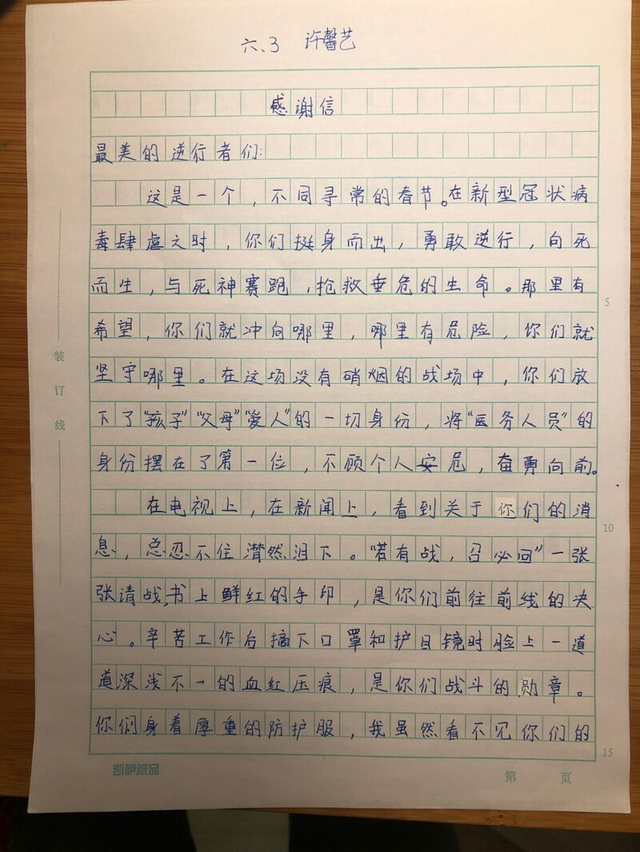 六.3 许馨艺
感谢信
最美的逆行者们:
这是一个，不同寻常的春节。在新型冠状病
毒肆虐之时，你们挺身而出，勇敢逆行，向死
而生，与死神赛跑，抢救垂危的生命。那里有
希望，你们就冲向哪里，哪里有危险，你们就
坚守哪里。在这场没有硝烟的战场中，你们放
下了“孩子”“父母”“爱人”的一切身份，将“医务人员”的
身份摆在了第一位，不顾个人安危，奋勇向前。
在电视上，在新闻上，看到关于你们的消
息，总忍不住潸然泪下。“若有战，召必回”一张
张请战书上鲜红的手印，是你们前往前线的决
心。辛苦工作后摘下口罩和护目镜时脸上一道
道深浅不一的血红压痕，是你们战斗的勋章。
你们身着厚重的防护服，我虽然看不见你们的
装订线
5
10
15
凯萨纸品
第 页